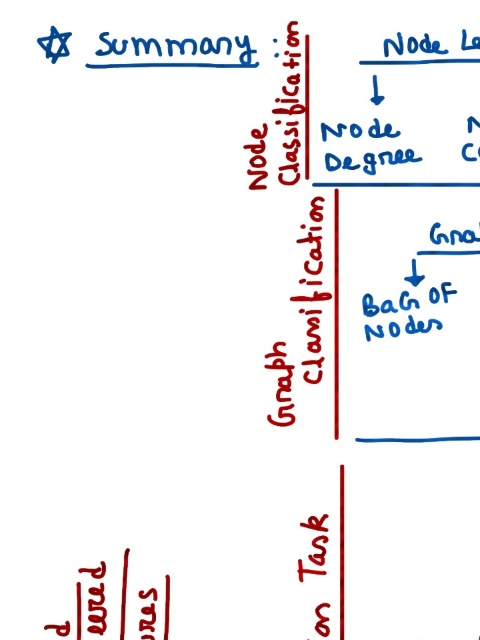 ☆ Summary :
Node Le
Node
Classification
Node
Degree
N
Co
Graph
Classification
Gra
Bag Of
Nodes
on Task
d
eered
ures